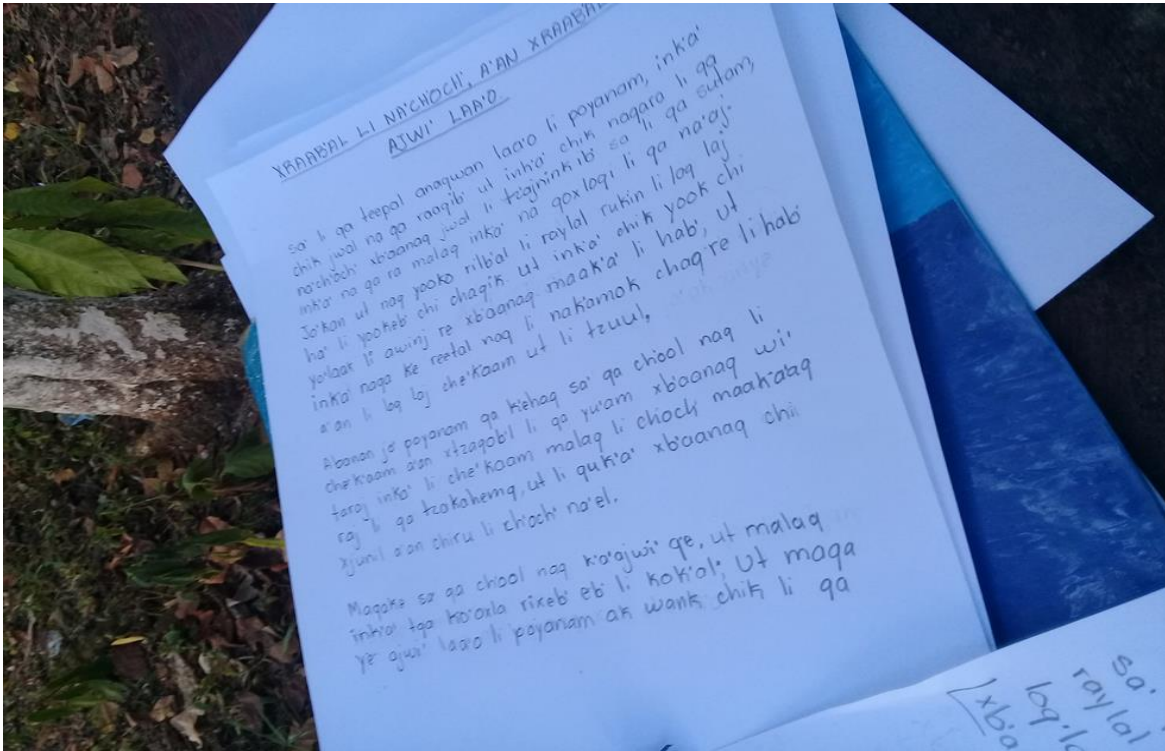 XRAAB'AL LI NA'CHOCH', A'AN XRAAB'AL
AJWI' LAA'O.
Sa' li qa teepal anaqwan laa'o li poyanam, ink'a'
chik jwal na qa raaqib' ut ink'a' chik naqara li qa
na'ch'och' xb'aanaq jwal li tz'ajnink ib' sa' li qa sutam,
ink'a' na qa ra malaq ink'a' na qoxloqi li qa na'aj.
Jo'kan ut naq yooko rilb'al li raylal rukin li loq laj
ha' li yookeb' chi chaqik ut ink'a' chik yook chi
yo'laak li awinj re xb'aanaq maak'a' li hab', ut
ink'a' naqa ke reetal naq li nak'amok chaq re li hab'
a'an li loq laj che'k'aam ut li tzuul.
Abanan jo' poyanam qa k'ehaq sa' qa ch'ool naq li
che'k'aam a'an xtzaqob'l li qa yu'am xb'aanaq wi'
taraj ink'a' li che' k'aam malaq li ch'och' maak'a'aq
raj li qa tzakahemq, ut li quk'a' xb'aanaq chi
xjunil a'an chiru li ch'och' na'el.
Maqak'e sa' qa ch'ool naq k'a'ajwi' qe, ut malaq
ink'a' tqa k'o'oxla rixeb' eb' li kok'al; ut maqa
ye ajwi' laa'o li poyanam ak wank chik li qa
sa'
raylal
loq'l
xb'a